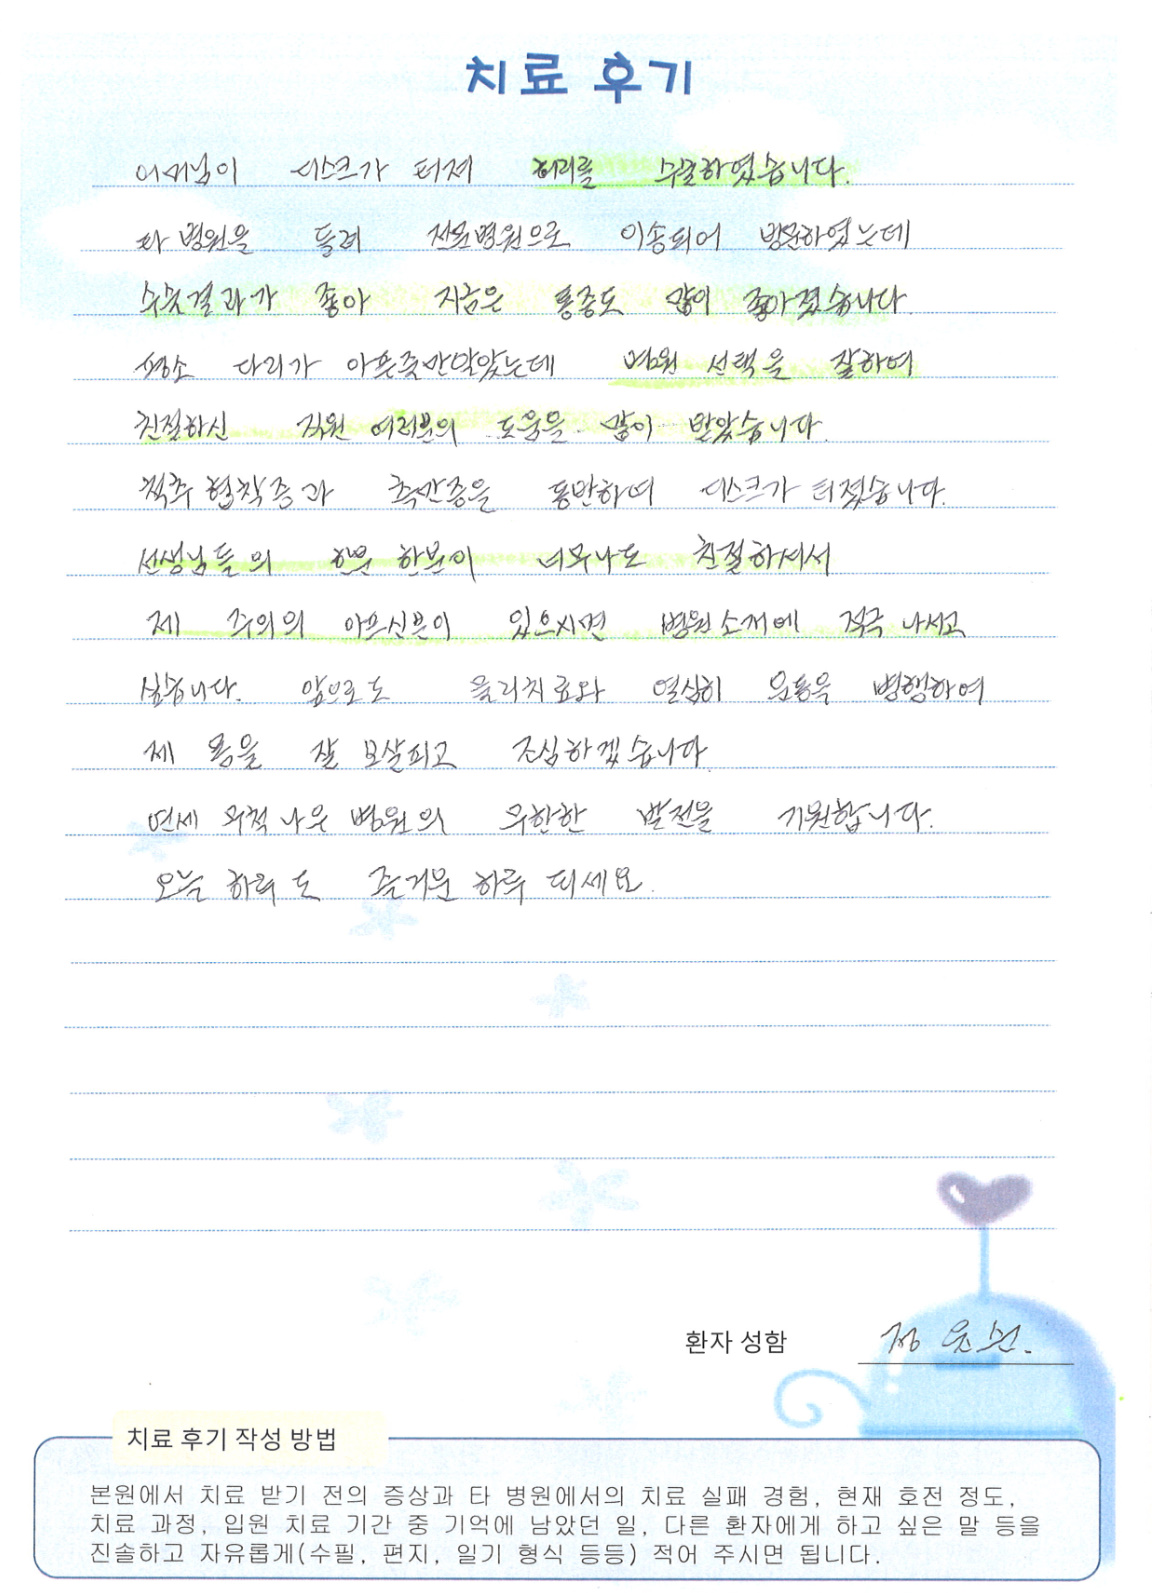 치료 후기
어머님이 디스크가 터져 허리를 수술하였습니다.
타 병원을 들려 전문병원으로 이송되어 방문하였는데
수술결과가 좋아 지금은 통증도 많이 좋아졌습니다.
평소 다리가 아픈줄만알았는데 병원 선택을 잘하여
친절하신 직원 여러분의 도움을 많이 받았습니다.
척추 협착증과 측만증을 동반하여 디스크가 터졌습니다.
선생님들의 한분 한분이 너무나도 친절하셔서
제 주의의 아프신분이 있으시면 병원소개에 적극 나서고
싶습니다. 앞으로도 물리치료와 열심히 운동을 병행하여
제 몸을 잘 보살피고 조심하겠습니다.
연세 척 나무 병원의 무한한 발전을 기원합니다.
오늘 하루도 즐거운 하루 되세요.
환자 성함 정
치료 후기 작성 방법
본원에서 치료 받기 전의 증상과 타 병원에서의 치료 실패 경험, 현재 호전 정도,
치료 과정, 입원 치료 기간 중 기억에 남았던 일, 다른 환자에게 하고 싶은 말 등을
진솔하고 자유롭게(수필, 편지, 일기 형식 등등) 적어 주시면 됩니다.